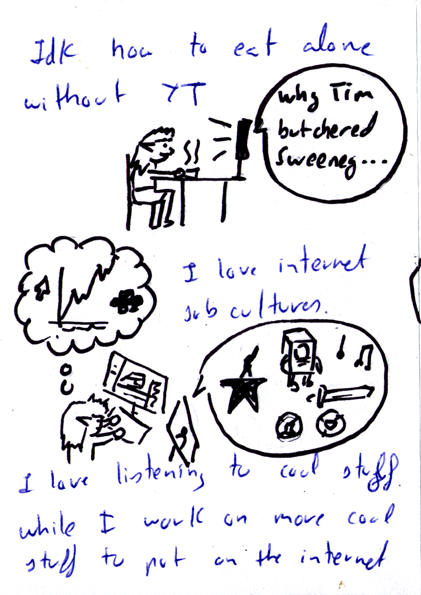 Idk how to eat alone
without YT
why Tim
butchered
Sweeney...
I love internet
sub cultures.
I love listening to cool stuff
while I work on more cool
stuff to put on the internet